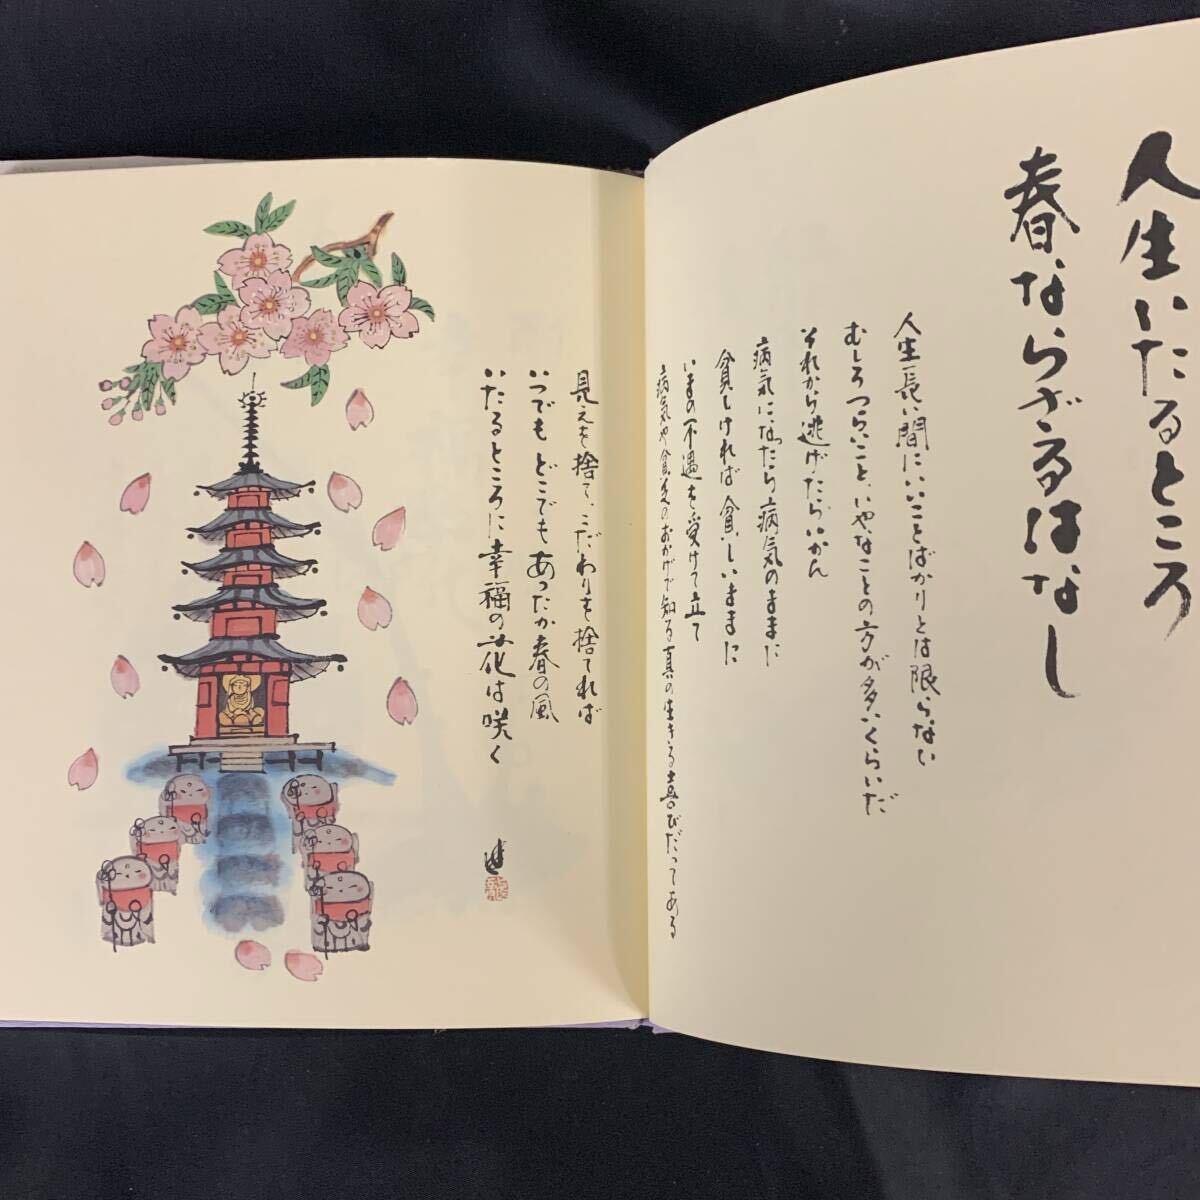 人生いたるところ
春ならざるはなし
人生長い間にいいことばかりとは限らない
むしろつらいこと、いやなことの方が多いくらいだ
それから逃げたらいかん
病気になったら病気のままに
貧しければ貧しいままに
いまの不遇を受けて立て
病気や貧乏のおかげで知る真の生きる喜びだってある
見えを捨て、こだわりを捨てれば
いつでもどこでもあったか春の風
いたるところに幸福の花は咲く